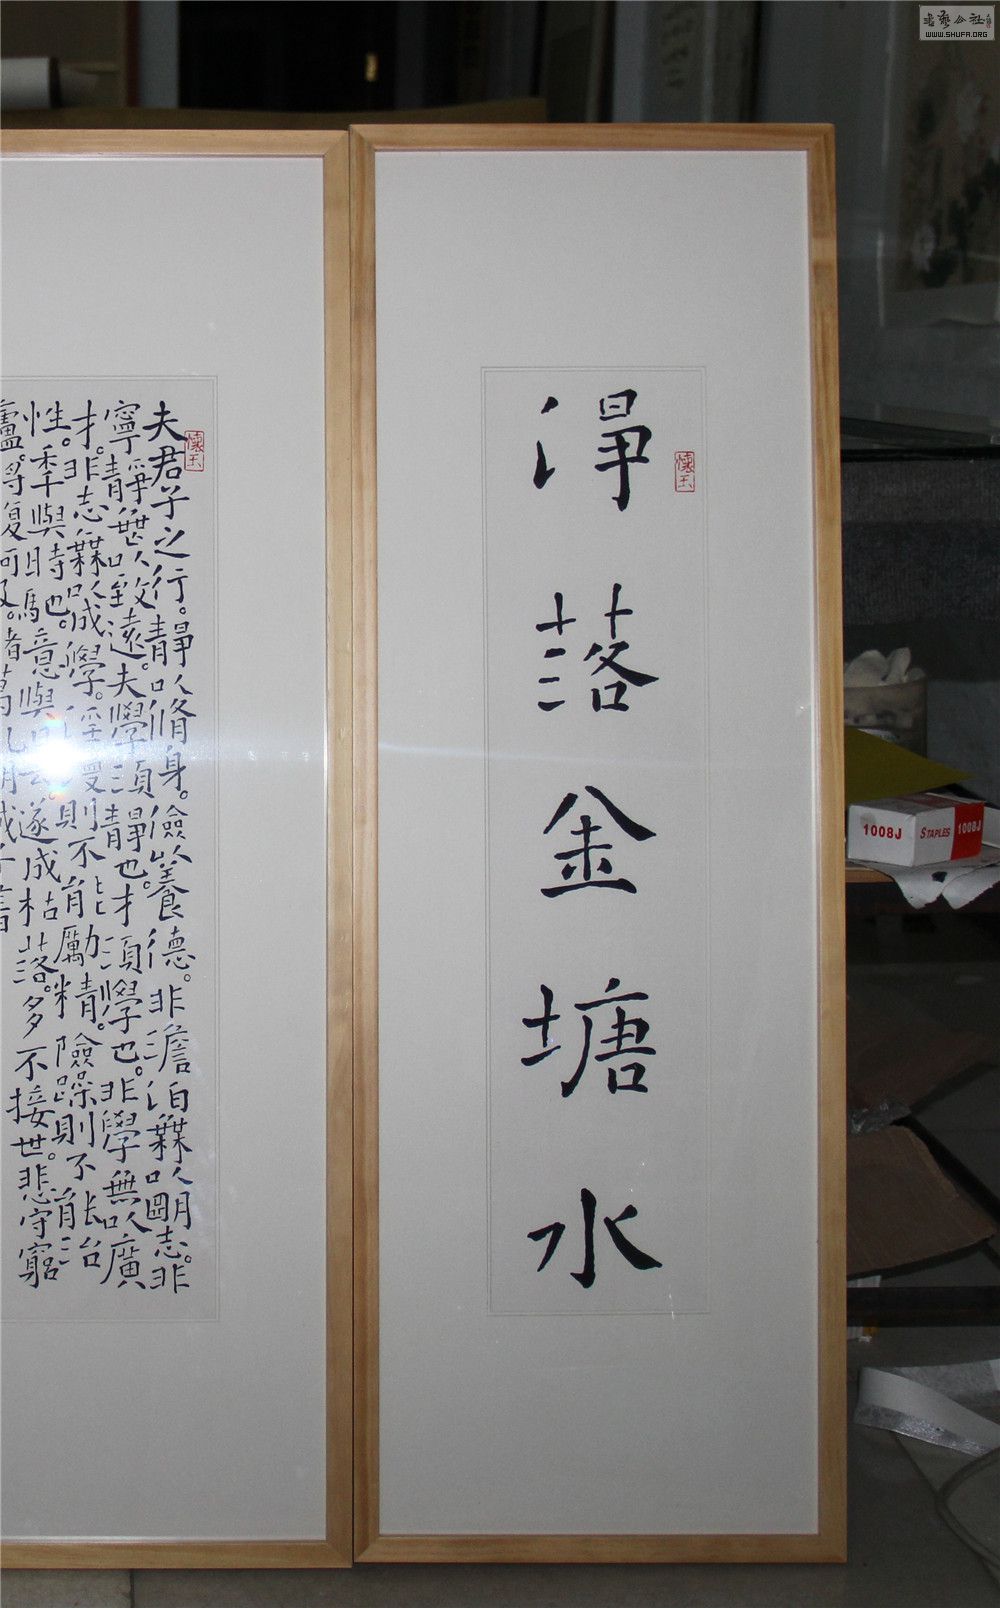 淨落金塘水
懷玉
夫君子之行。靜以脩身。儉以養德。非澹泊無以明志。非
寧靜無以致遠。夫學須靜也。才須學也。非學無以廣
才。非志無以成學。淫慢則不能勵精。險躁則不能治
性。年與時馳。意與日去。遂成枯落。多不接世。悲守窮
廬。將復何及。諸葛孔明誡子書
懷玉
1008J STAPLES 1008J
书艺公社
WWW.SHUFA.ORG